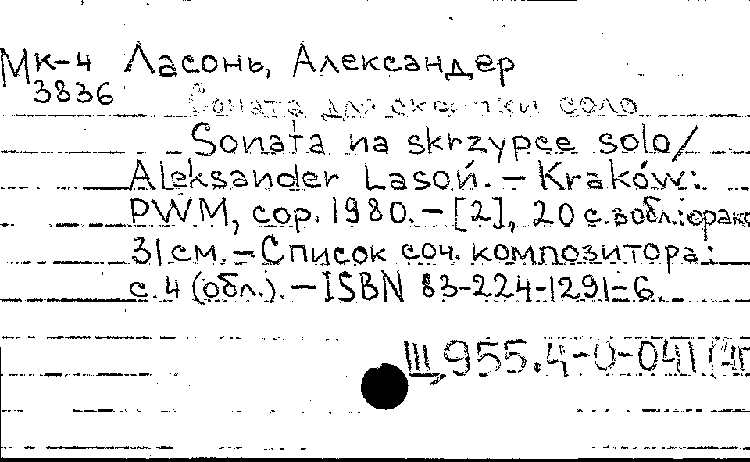 Мк-4 Ласонь, Александер
3836
Соната для скрипки соло
Sonata na skrzypce solo/
Aleksander Lasoń. – Kraków:
PWM, cop. 1980. – [2], 20 с. в обл.:
31 см. – Список соч. композитора:
с. 4 (обл.). – ISBN 83-224-1291-6.
Ш 955.4-0-041